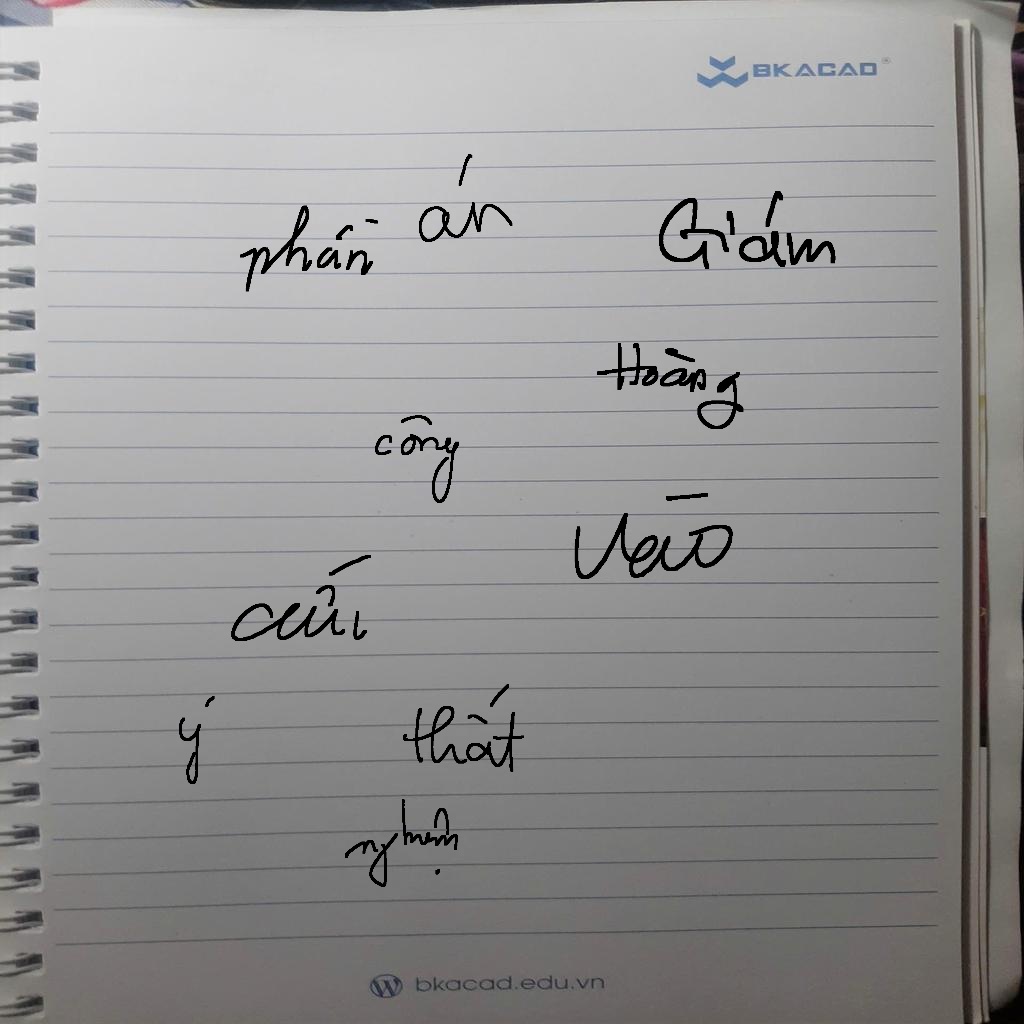 BKACAD®
phần án Giám
Hoàng
công
vào
cứu
ý thất
nghiệm
bkacad.edu.vn